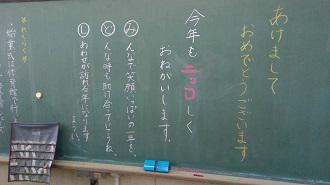 あけまして
おめでとうございます
今年も二コロしく
おねがいします。
みんなで笑顔いっぱいの一年を、
どんな時も助け合ってどうね。
しあわせが訪れる年になります
ように。